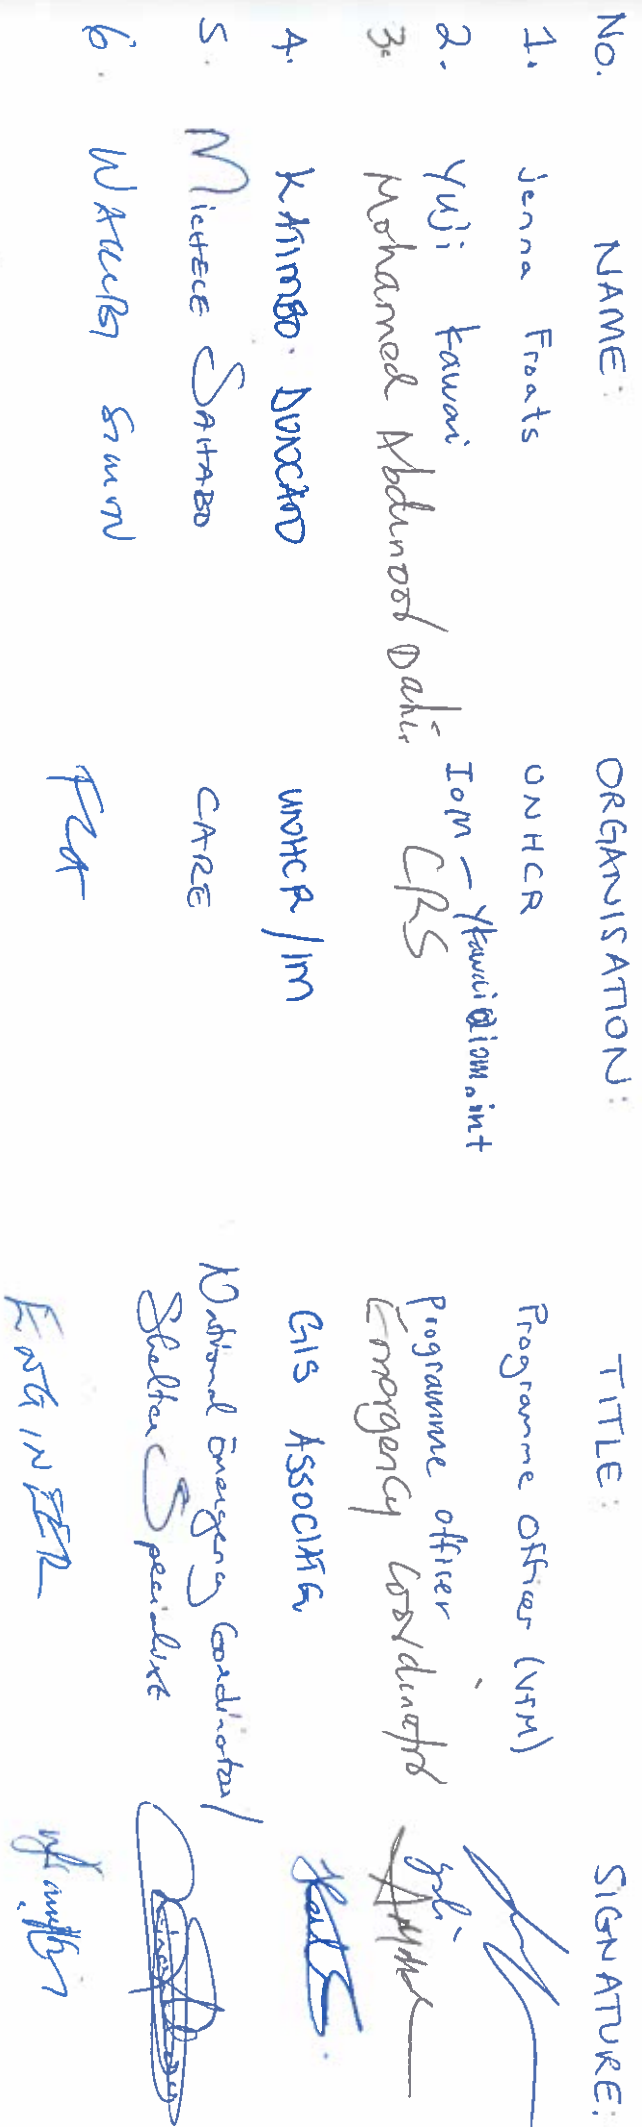 No. NAME: ORGANISATION: TITLE: SIGNATURE:
1. Jenna Froats UNHCR Programme Officer (VFM)
2. Yuji Kawai IOM - ykawai@iom.int Programme officer
3. Mohamed Abdinoor Dahir CRS Emergency Coordinator
4. KATIMBO DUNCAN UNHCR/IM GIS ASSOCIATE
5. MICHELE SAHABO CARE National Emergency Coordinator/
Shelter Specialist
6. Simon ENGINEER